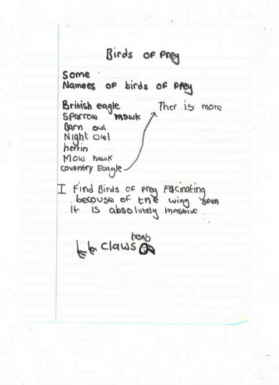 Birds of Prey
Some
Names of birds of prey
British eagle
Ther is more
Sparrow hawk
Barn owl
Night owl
herrin
Mow hawk
coventry Eagle
I Find Birds of Prey Fascinating
because of the wing span
It is absolutely massive
claws